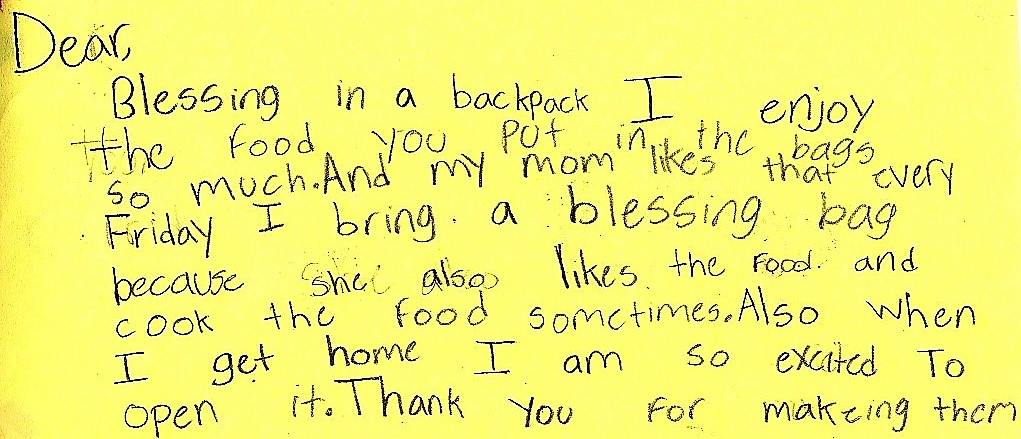 Dear,
Blessing in a backpack I enjoy
the food you put in the bags
so much. And my mom likes that every
Friday I bring a blessing bag
because she also likes the food. and
cook the food sometimes. Also when
I get home I am so excited To
open it. Thank you for makeing them